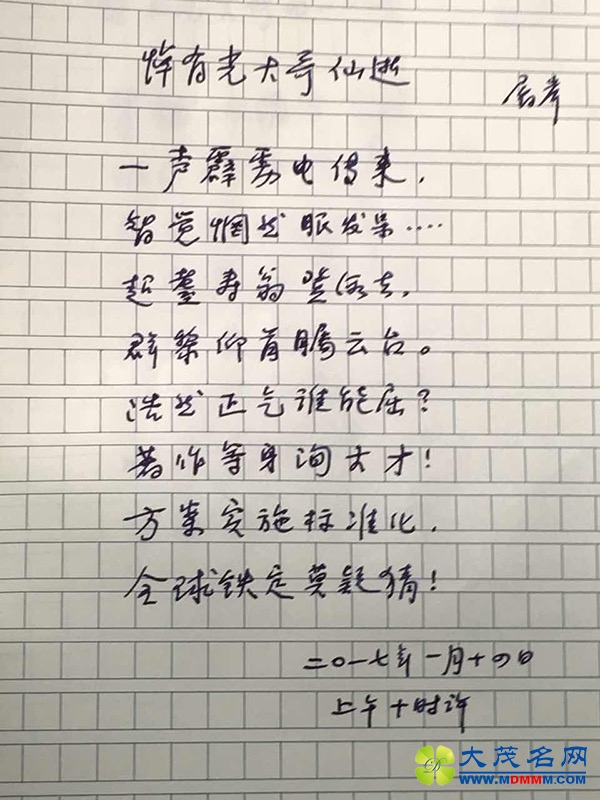 悼有光大哥仙逝
屠岸
一声霹雳电传来，
智觉惘然眼发呆……
超耋寿翁登仙去，
群黎仰首瞩云台。
浩然正气谁能屈？
著作等身洵大才！
方案实施标准化，
全球铁定莫疑猜！
二〇一七年一月十四日
上午十时许
大茂名网
WWW.MDMMM.COM